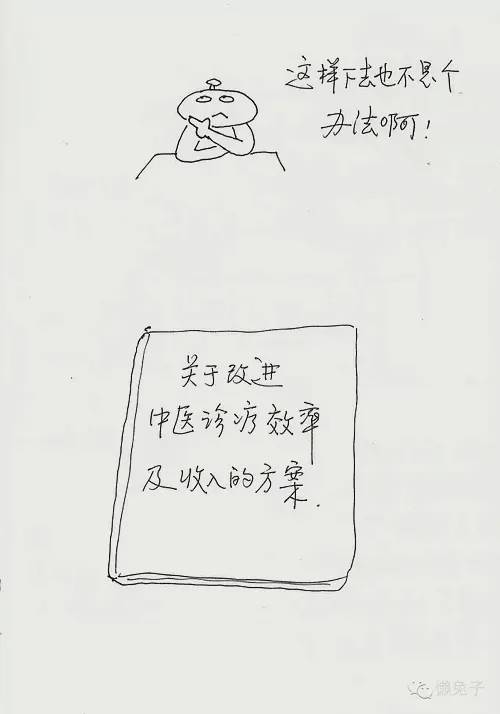 这样下去也不是个
办法啊!
关于改进
中医诊疗效率
及收入的方案.
懒兔子